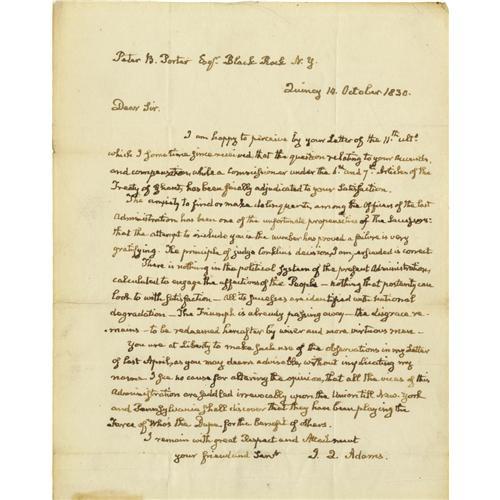 Peter B. Porter Esqr. Black Rock N. Y.
Quincy 14. October 1830.
Dear Sir.
I am happy to perceive by your Letter of the 11th. ulto.
which I sometime since received, that the question relating to your Accounts,
and compensation, while a Commissioner under the 6th. and 7th. Articles of the
Treaty of Ghent, has been finally adjudicated to your Satisfaction.
The anxiety to find or make delinquents, among the Officers of the last
Administration has been one of the unfortunate propensities of the Successor:
that the attempt to include you in the number has proved a failure is very
gratifying. The principle of judge Conklins decision, I am persuaded is correct
There is nothing in the political System of the present Administration,
calculated to engage the affections of the People — nothing that posterity can
look to with Satisfaction — All its Successes are identified with national
degradation — The Triumph is already passing away — the disgrace re-
mains — to be redeemed hereafter by wiser and more virtuous men —
You are at Liberty to make such use of the observations in my Letter
of last April, as you may deem advisable, without implicating my
name. I see no cause for altering the opinion, that all the vices of this
Administration are saddled irrevocably upon the Union till New-York
and Pennsylvania shall discover that they have been playing the
Farce of Who's the Dupe, for the benefit of others.
I remain with great Respect and Attachment
your friend and Servt. J. Q. Adams.